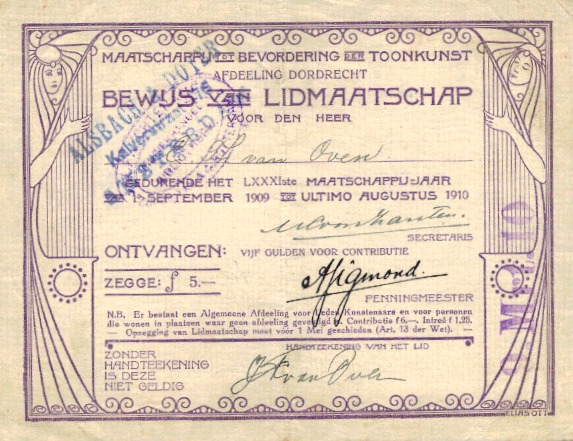 MAATSCHAPPIJ TOT BEVORDERING DER TOONKUNST
AFDEELING DORDRECHT
BEWIJS VAN LIDMAATSCHAP
VOOR DEN HEER
van Oven.
GEDURENDE HET LXXXIste MAATSCHAPPIJ-JAAR
VAN 1 SEPTEMBER 1909 TOT ULTIMO AUGUSTUS 1910
SECRETARIS
ONTVANGEN: VIJF GULDEN VOOR CONTRIBUTIE
ZEGGE: ƒ 5.—
PENNINGMEESTER
N.B. Er bestaat een Algemeene Afdeeling voor Leden Kunstenaars en voor personen
die wonen in plaatsen waar geen afdeeling gevestigd is. Contributie f 6.—, Intreê f 1,25.
— Opzegging van Lidmaatschap moet vóór 1 Mei geschieden (Art. 13 der Wet). —
ZONDER
HANDTEEKENING
IS DEZE
NIET GELDIG
HANDTEEKENING VAN HET LID
van Oven
ELIAS OTT
ALSBACH & DOYER
Kalverstraat
AMSTERDAM